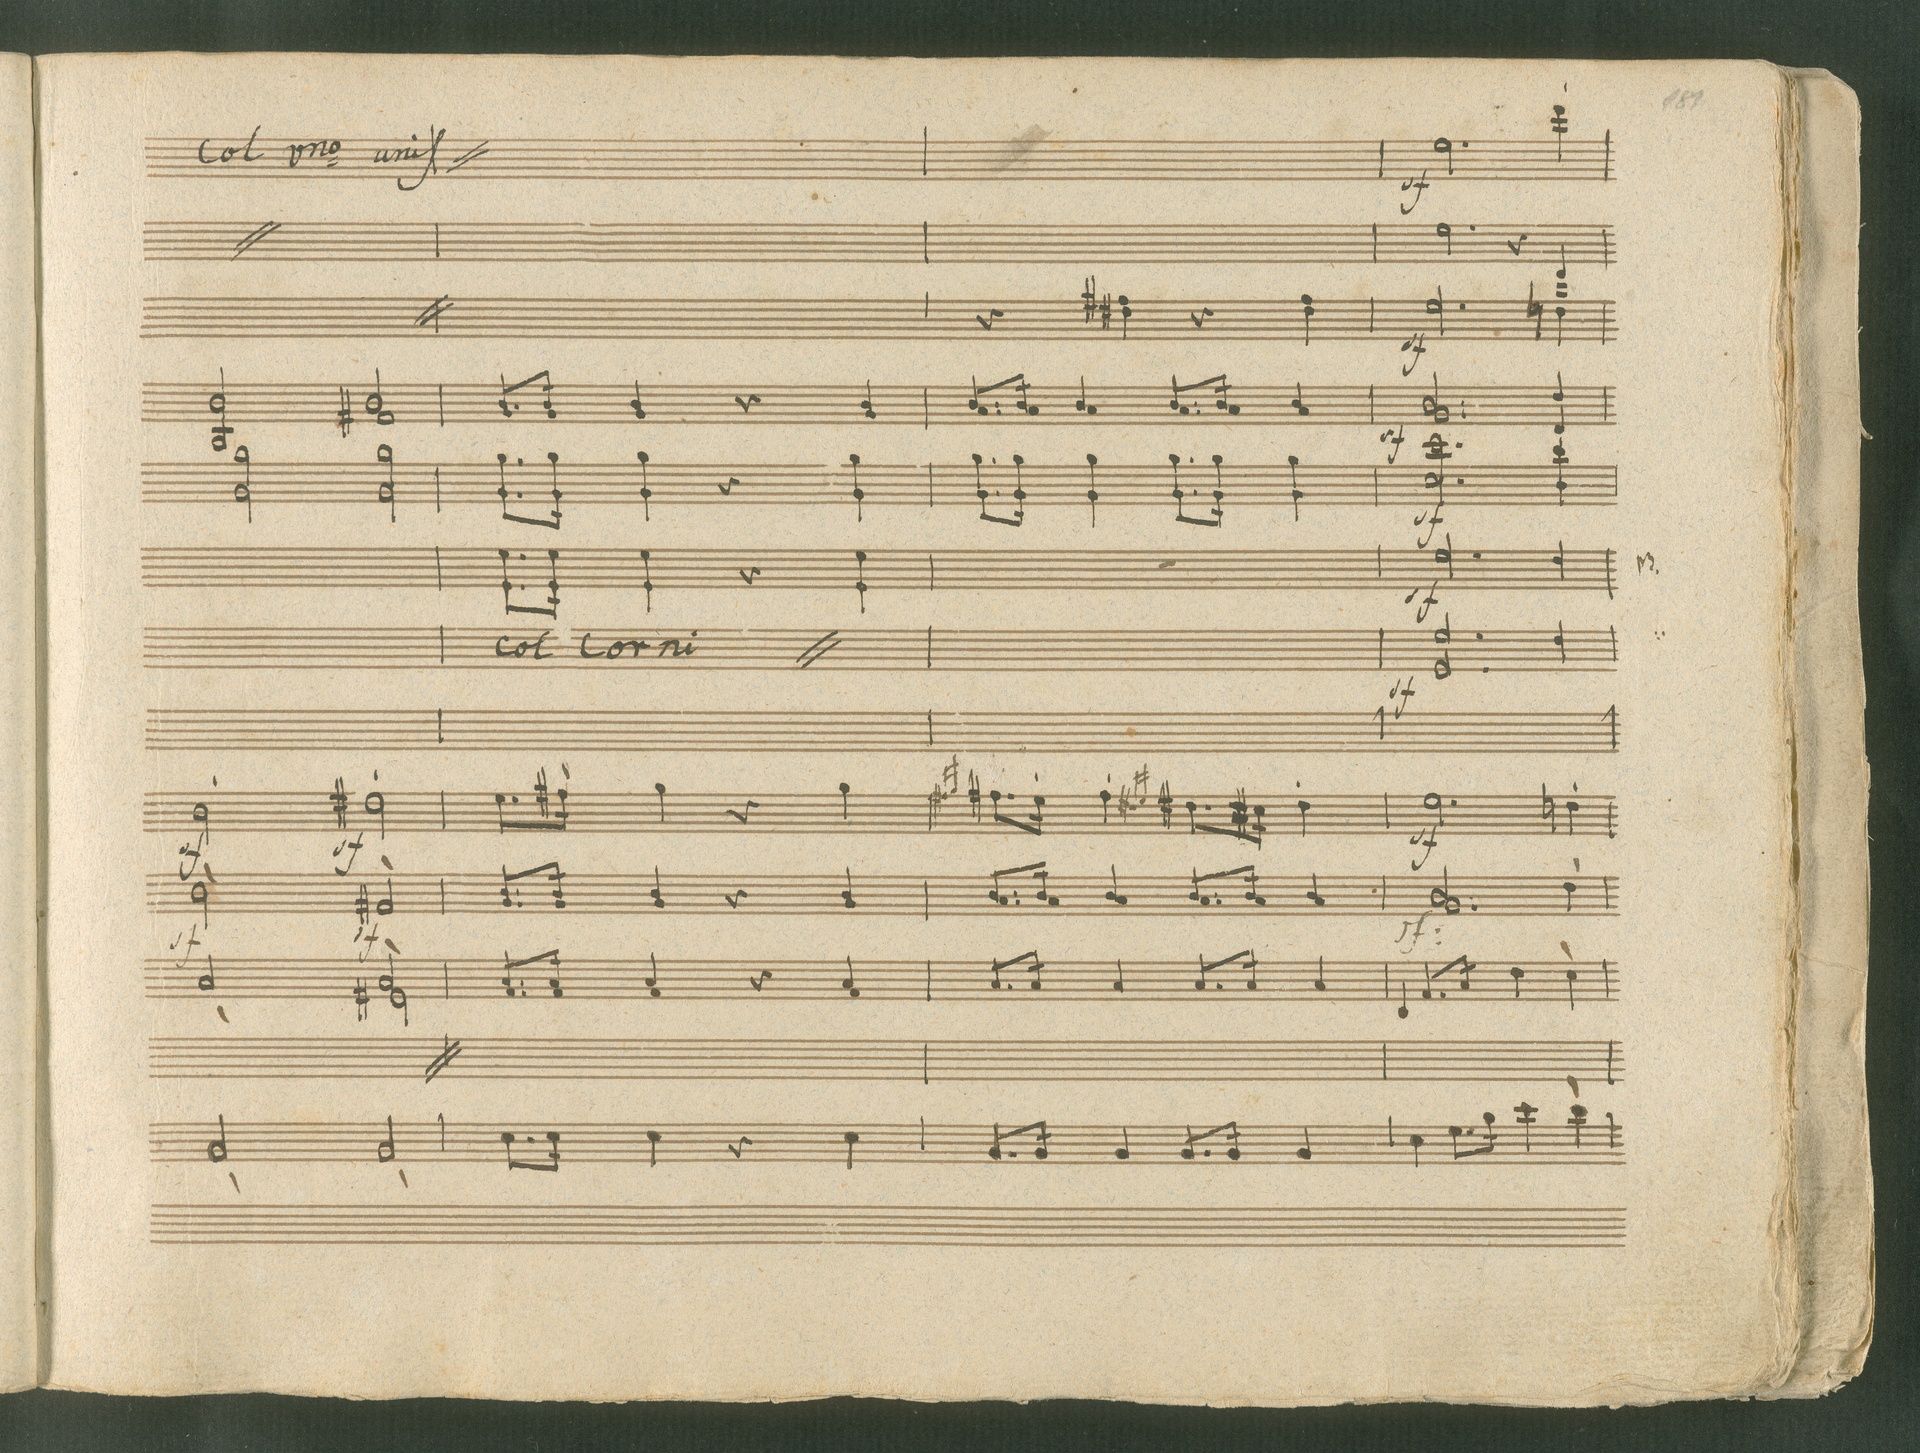 189
Col vno unis
sf
sf
sf
sf
sf
col Corni
sf
sf sf sf
sf sf sf: